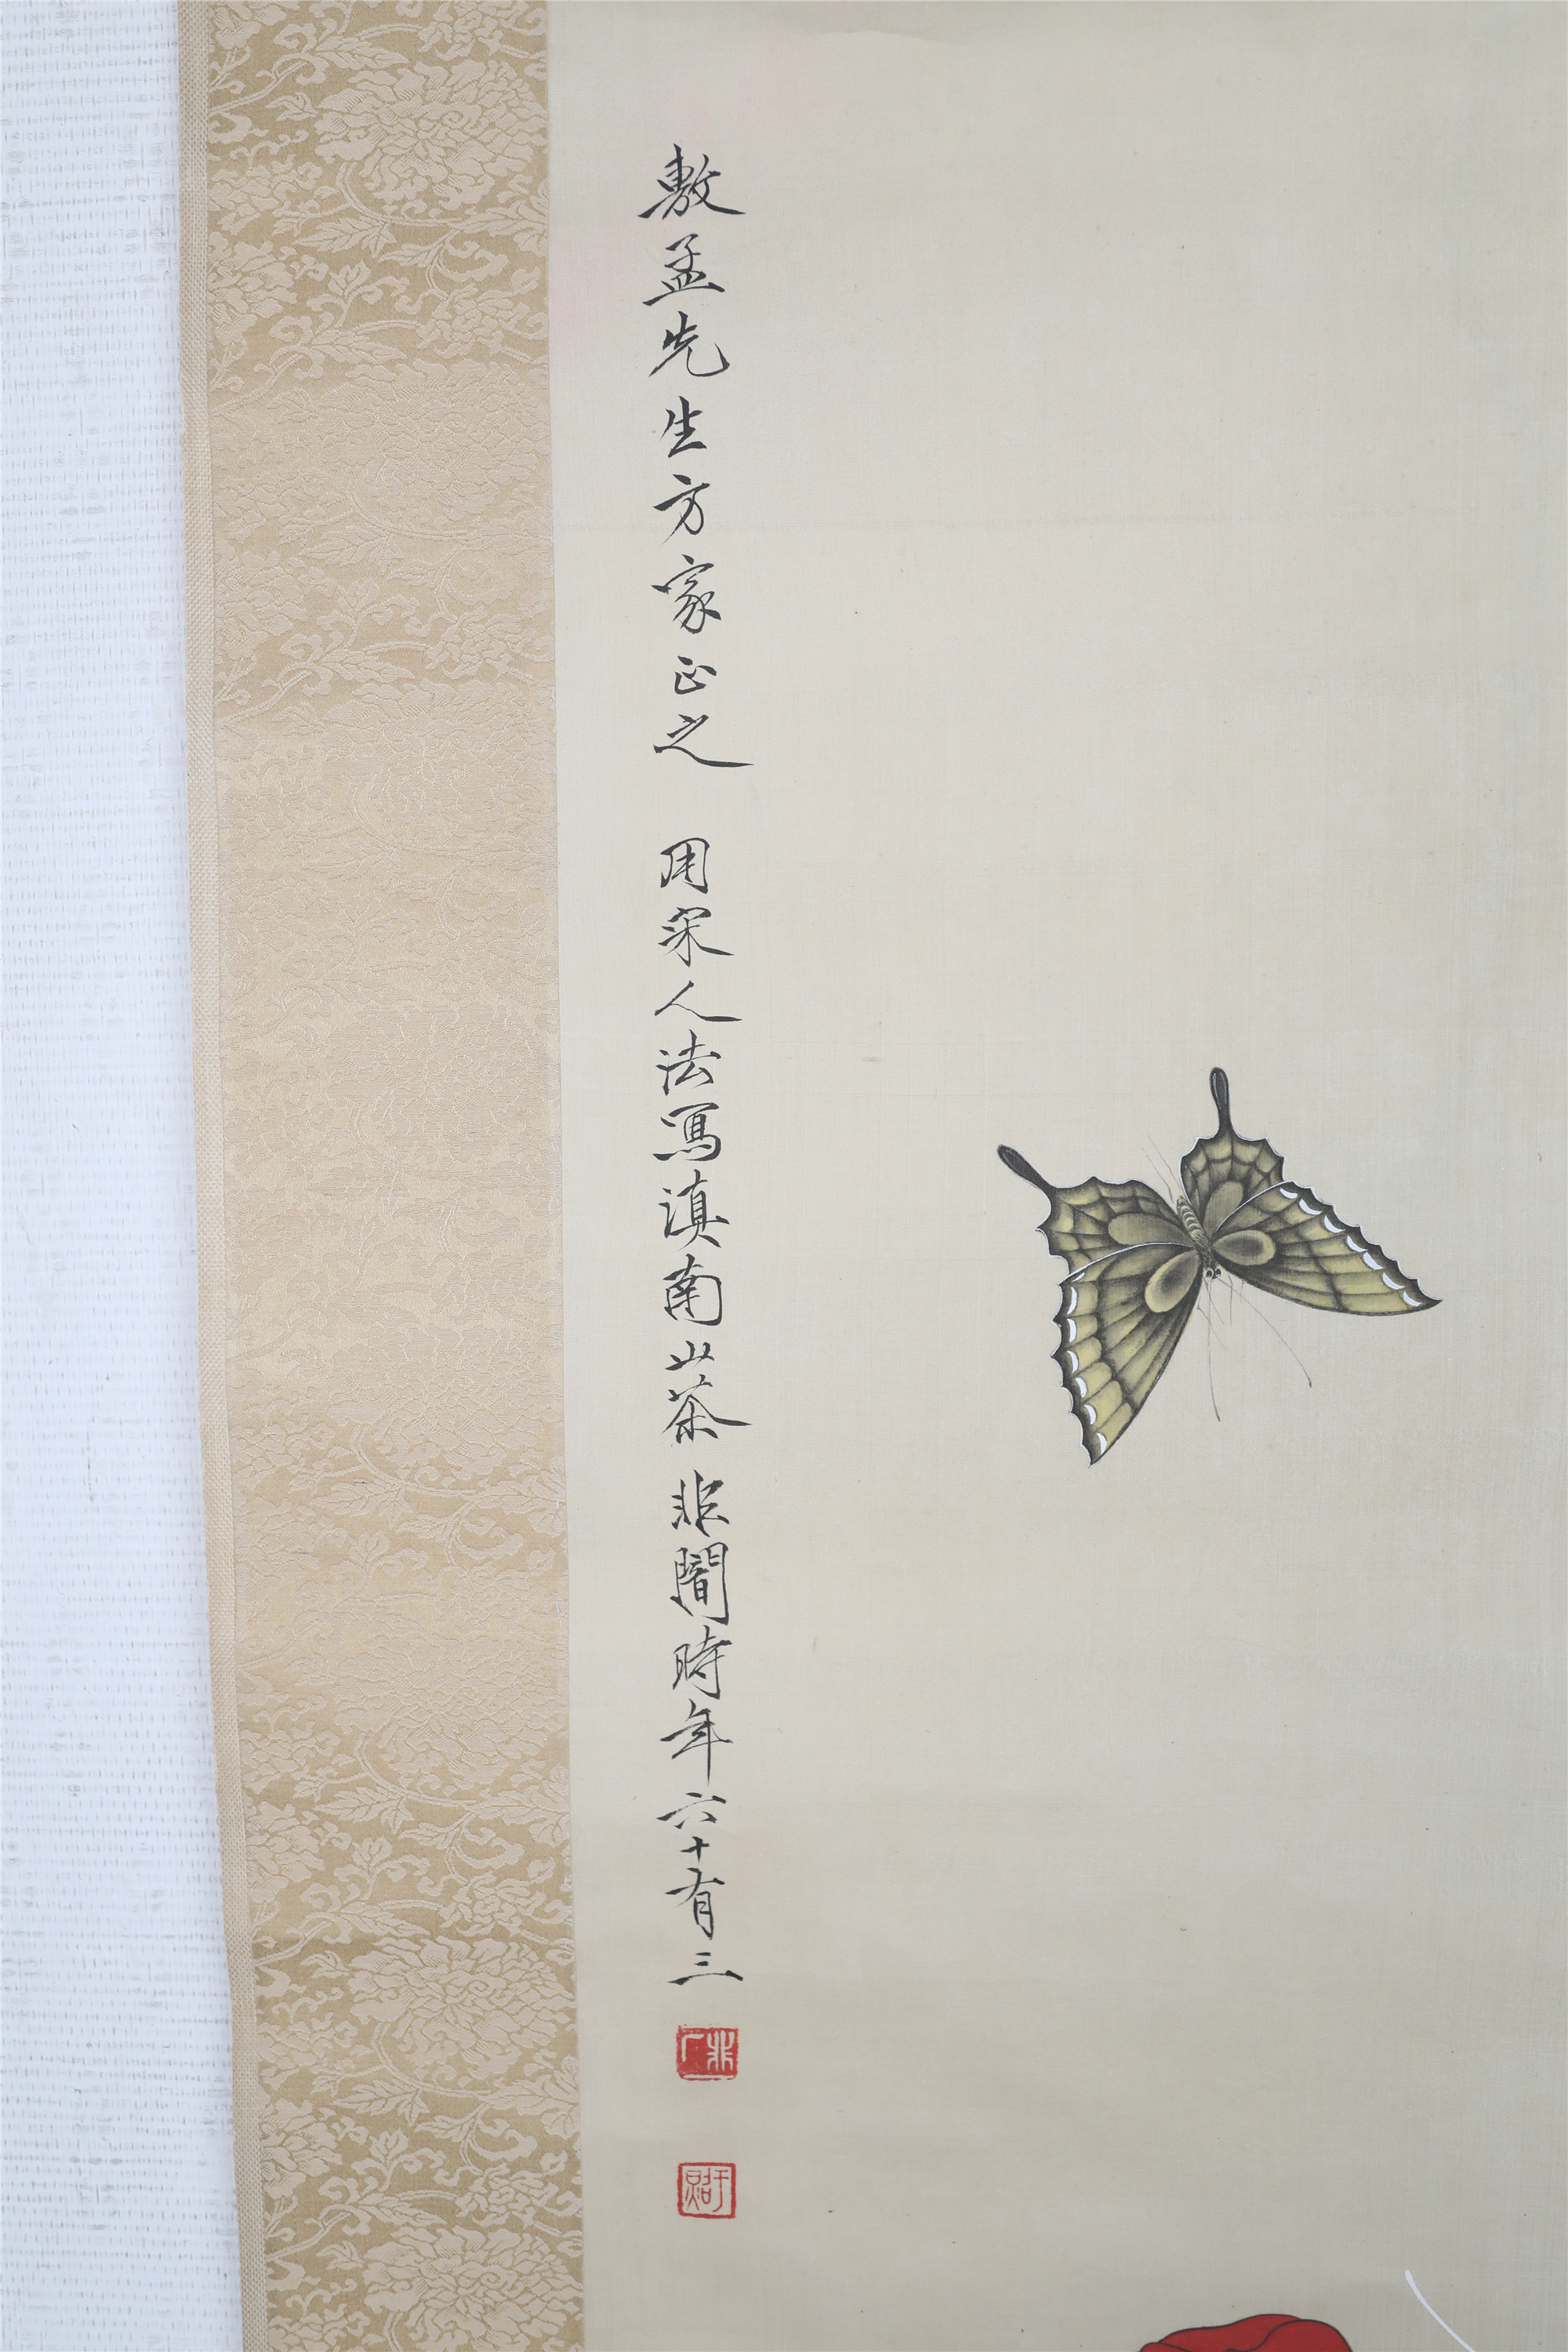 敷孟先生方家正之 用宋人法寫滇南山茶 非闇時年六十有三
非厂
于照